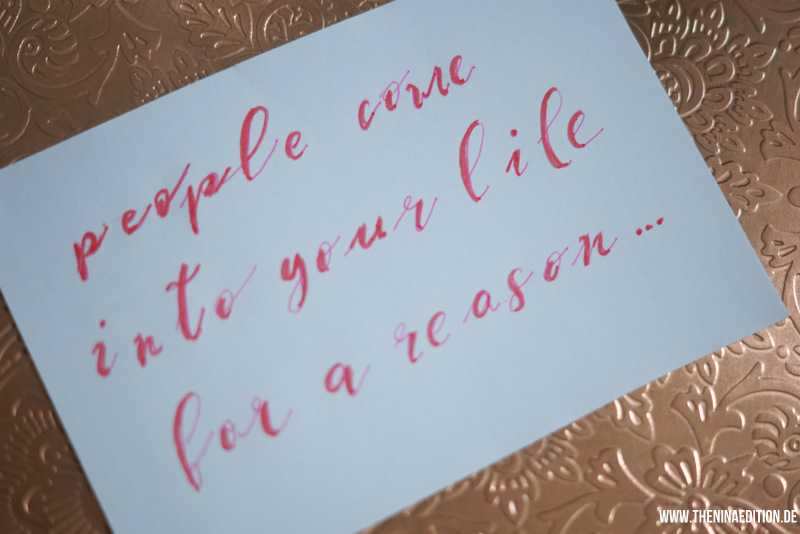 people come
into your life
for a reason...
WWW.THENINAEDITION.DE